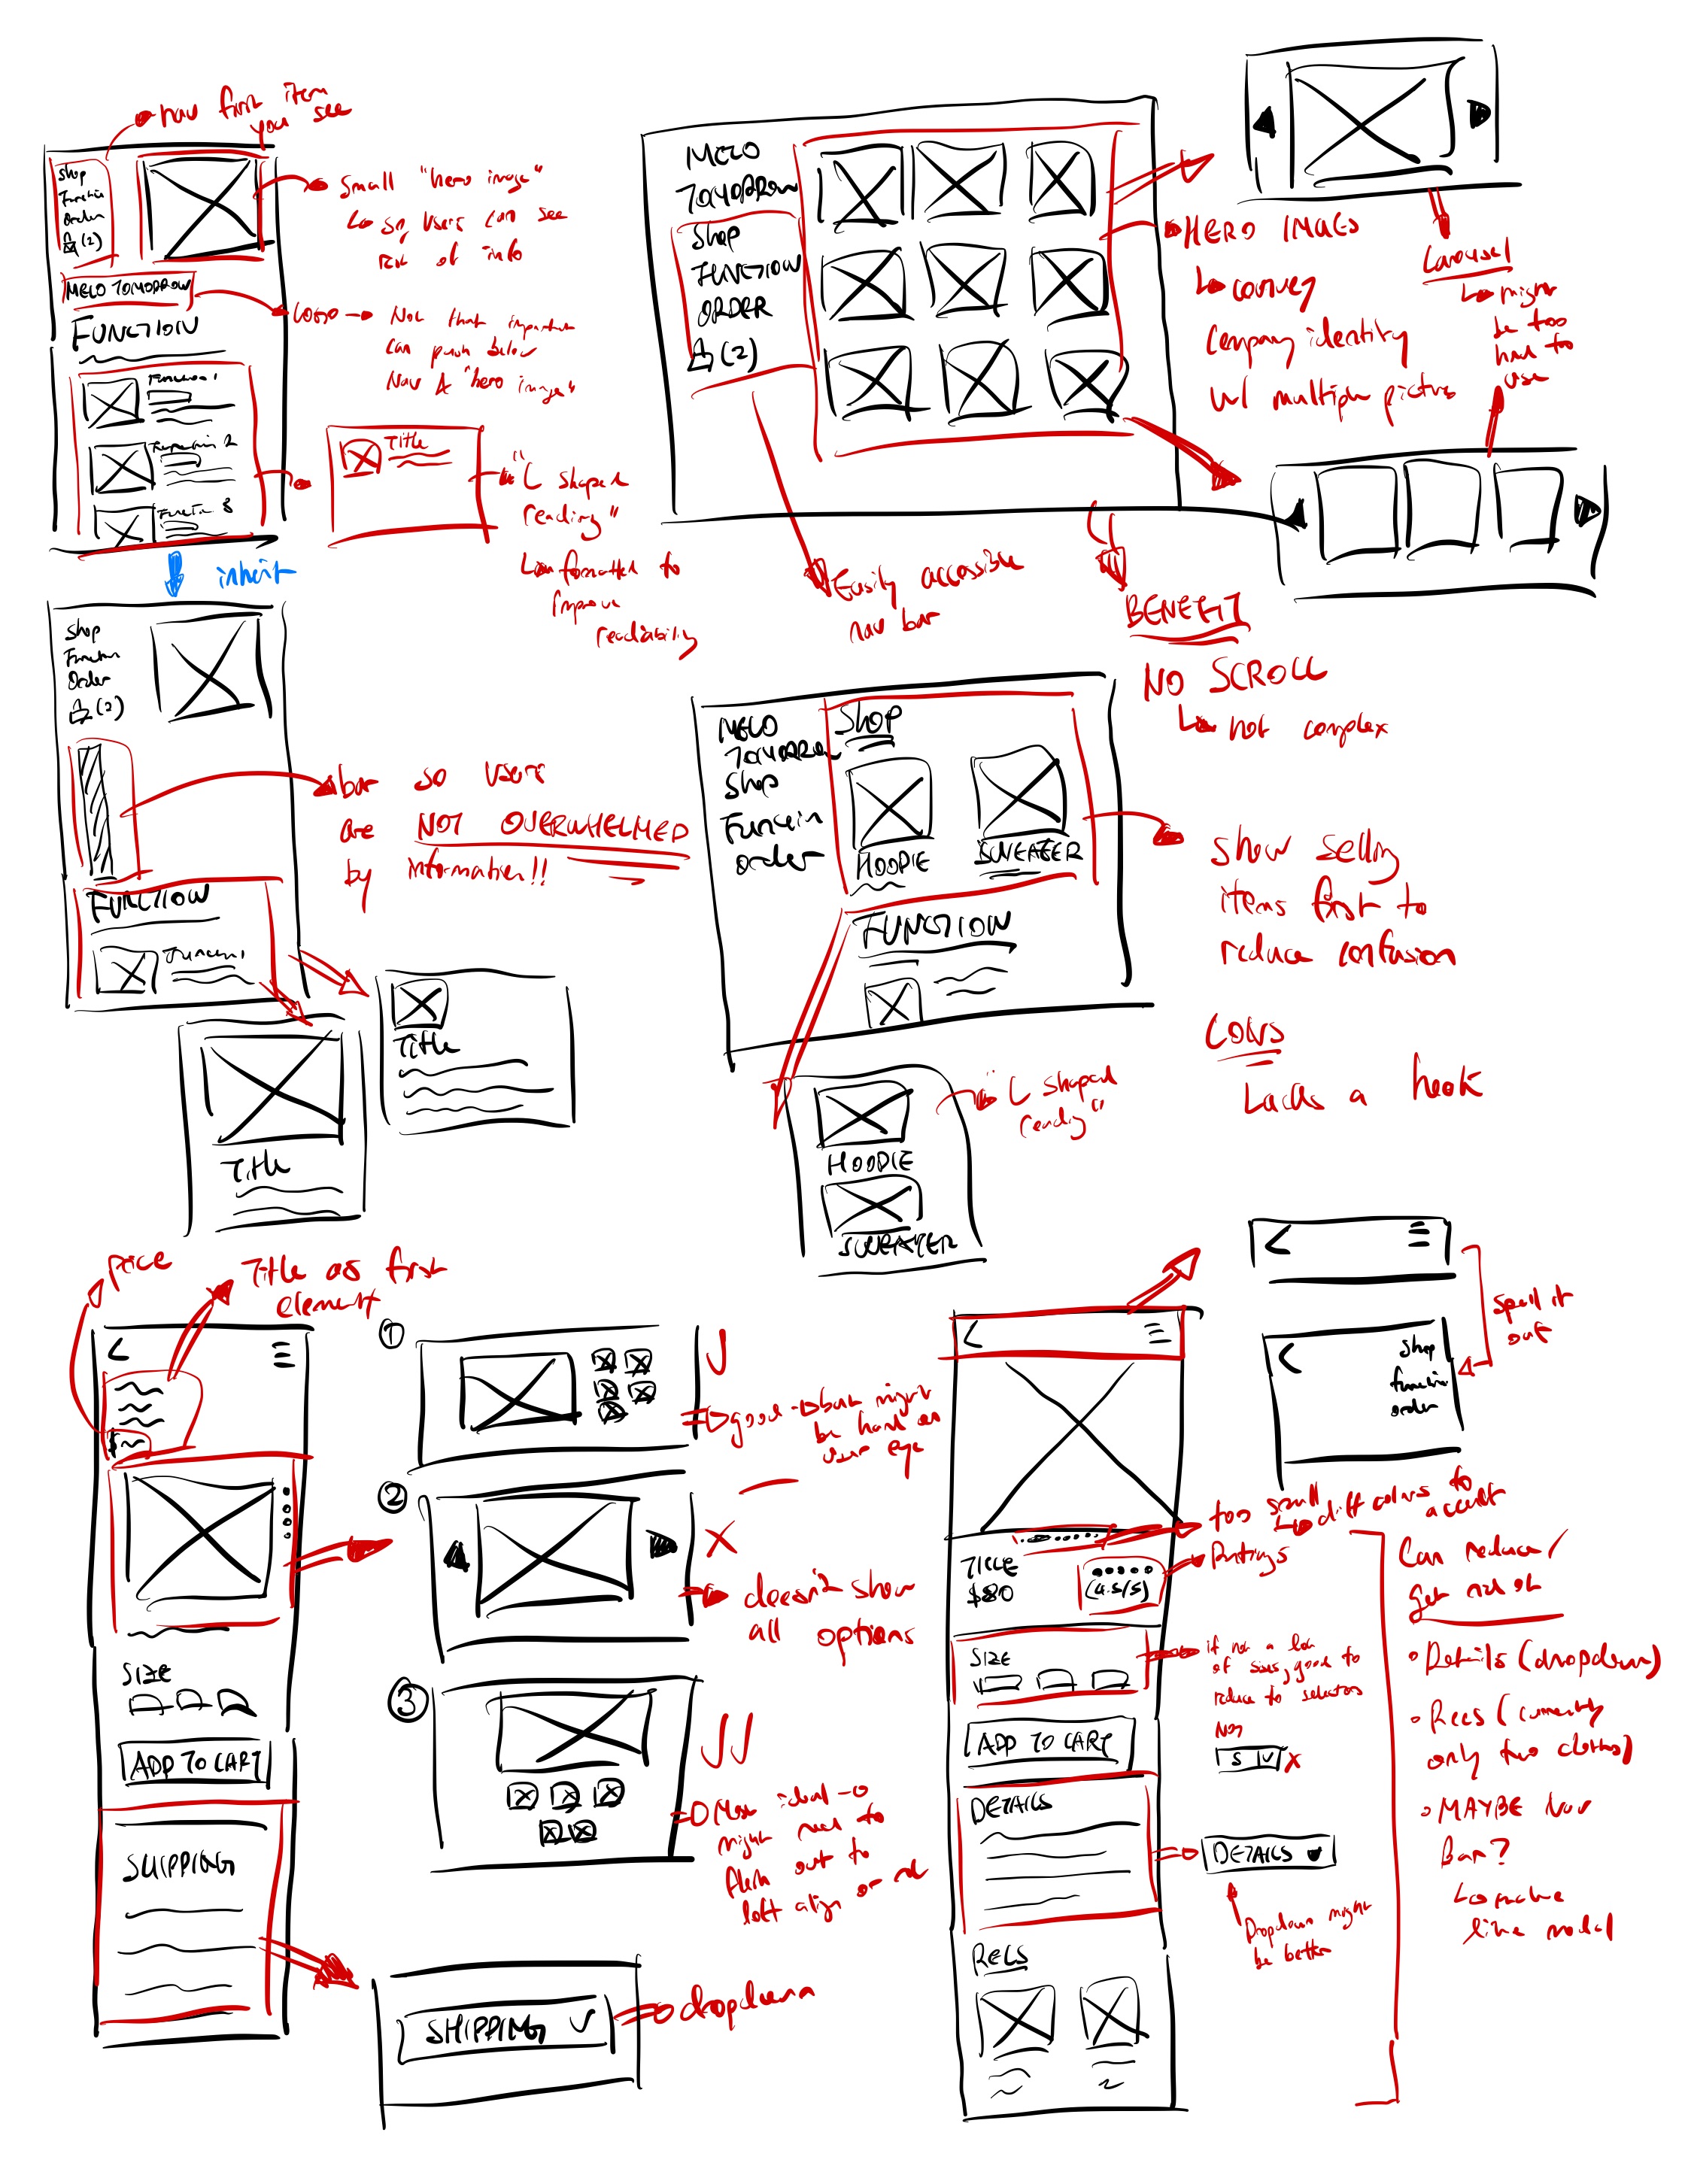 nav first item
you see
Shop
Function
Order
(2)
Small "hero image"
so users can see
rest of info
MELO TOMORROW
LOGO
Not that important
can push below
Nav & "hero image"
FUNCTION
Function 1
Function 2
Function 3
Title
"L shaped
reading"
formatted to
improve
readability
inherit
Shop
Function
Order
(2)
bar so users
are NOT OVERWHELMED
by information!!
FUNCTION
Function 1
Title
Title
MELO
TOMORROW
Shop
FUNCTION
ORDER
(2)
HERO IMAGES
convey
Company identity
w/ multiple pictures
Carousel
might
be too
hard to
use
Easily accessible
nav bar
BENEFIT
NO SCROLL
not complex
MELO
TOMORROW
Shop
Function
order
Shop
HOODIE
SWEATER
FUNCTION
show selling
items first to
reduce confusion
CONS
Lacks a hook
HOODIE
SWEATER
"L shaped
reading"
price
Title as first
element
<
$
SIZE
ADD TO CART
SHIPPING
1
good
but might
be hard on
user eye
2
doesn't show
all options
3
Most ideal
might need to
flesh out to
left align or not
SHIPPING
dropdown
<
<
Shop
function
order
spell it
out
<
too small
diff colors to
accent
TITLE
$80
(4.5/5)
Ratings
SIZE
if not a lot
of sizes, good to
reduce to selectors
Not
S
ADD TO CART
DETAILS
DETAILS
Dropdown might
be better
RECS
Can reduce/
get rid of
• Details (dropdown)
• Recs (currently
only two clothes)
• MAYBE Nav
Bar?
make
like model